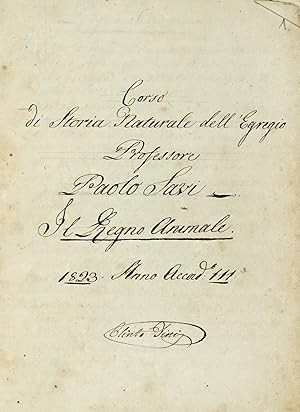 Corso
di Storia Naturale dell Egregio
Professore
Paolo Savi
Il Regno Animale.
1823. Anno Accad.º III
Olinto Dini